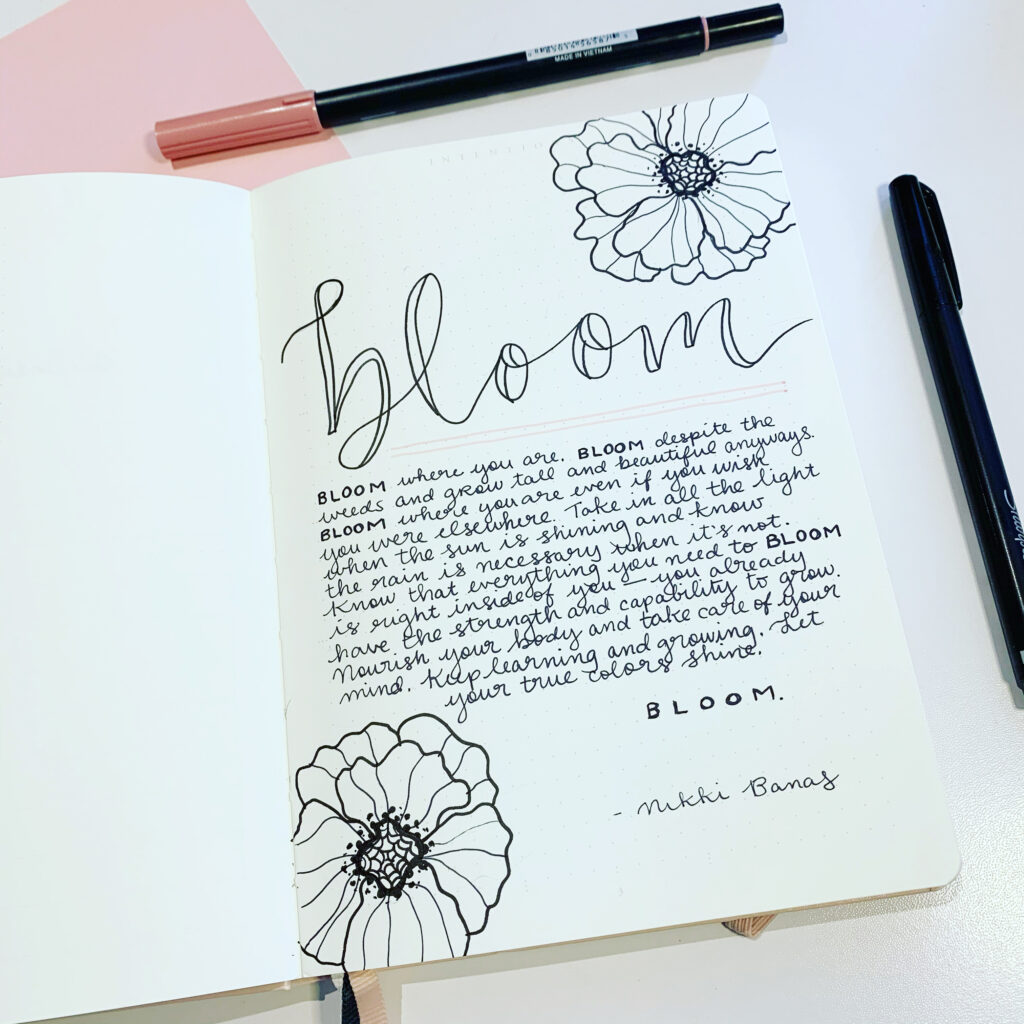 MADE IN VIETNAM
INTENTIO
bloom
BLOOM where you are. BLOOM despite the
weeds and grow tall and beautiful anyways.
BLOOM where you are even if you wish
you were elsewhere. Take in all the light
when the sun is shining and know
the rain is necessary when it's not.
Know that everything you need to BLOOM
is right inside of you — you already
have the strength and capability to grow.
Nourish your body and take care of your
mind. Keep learning and growing. Let
your true colors shine.
BLOOM.
- Nikki Banas